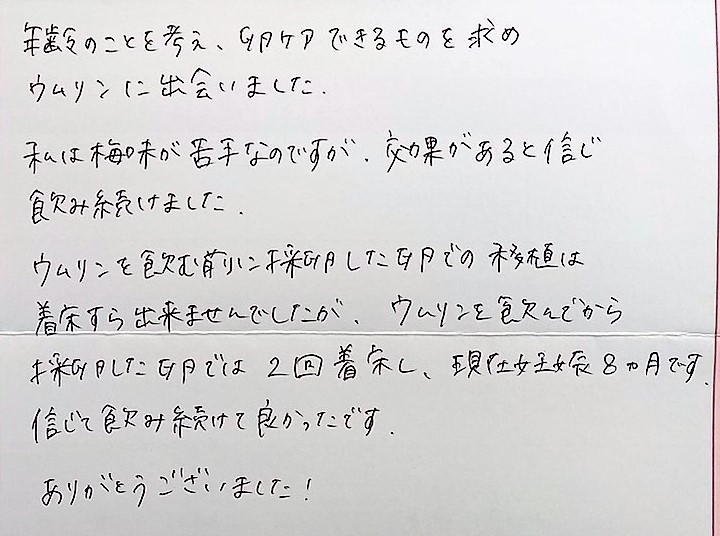 年齢のことを考え、卵ケアできるものを求め
ウムリンに出会いました.
私は梅味が苦手なのですが、効果があると信じ
飲み続けました.
ウムリンを飲む前に採卵した卵での移植は
着床すら出来ませんでしたが、ウムリンを飲んでから
採卵した卵では2回着床し、現在妊娠8ヵ月です.
信じて飲み続けて良かったです.
ありがとうございました!